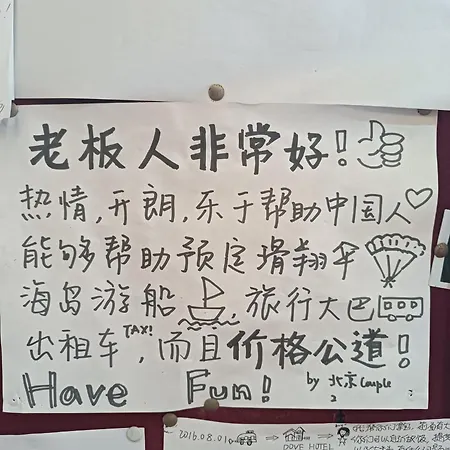 老板人非常好!
热情,开朗,乐于帮助中国人
能够帮助预定滑翔伞
海岛游船,旅行大巴
出租车TAXI,而且价格公道!
Have Fun! by 北京Couple
2
2016.08.01
DOVE HOTEL